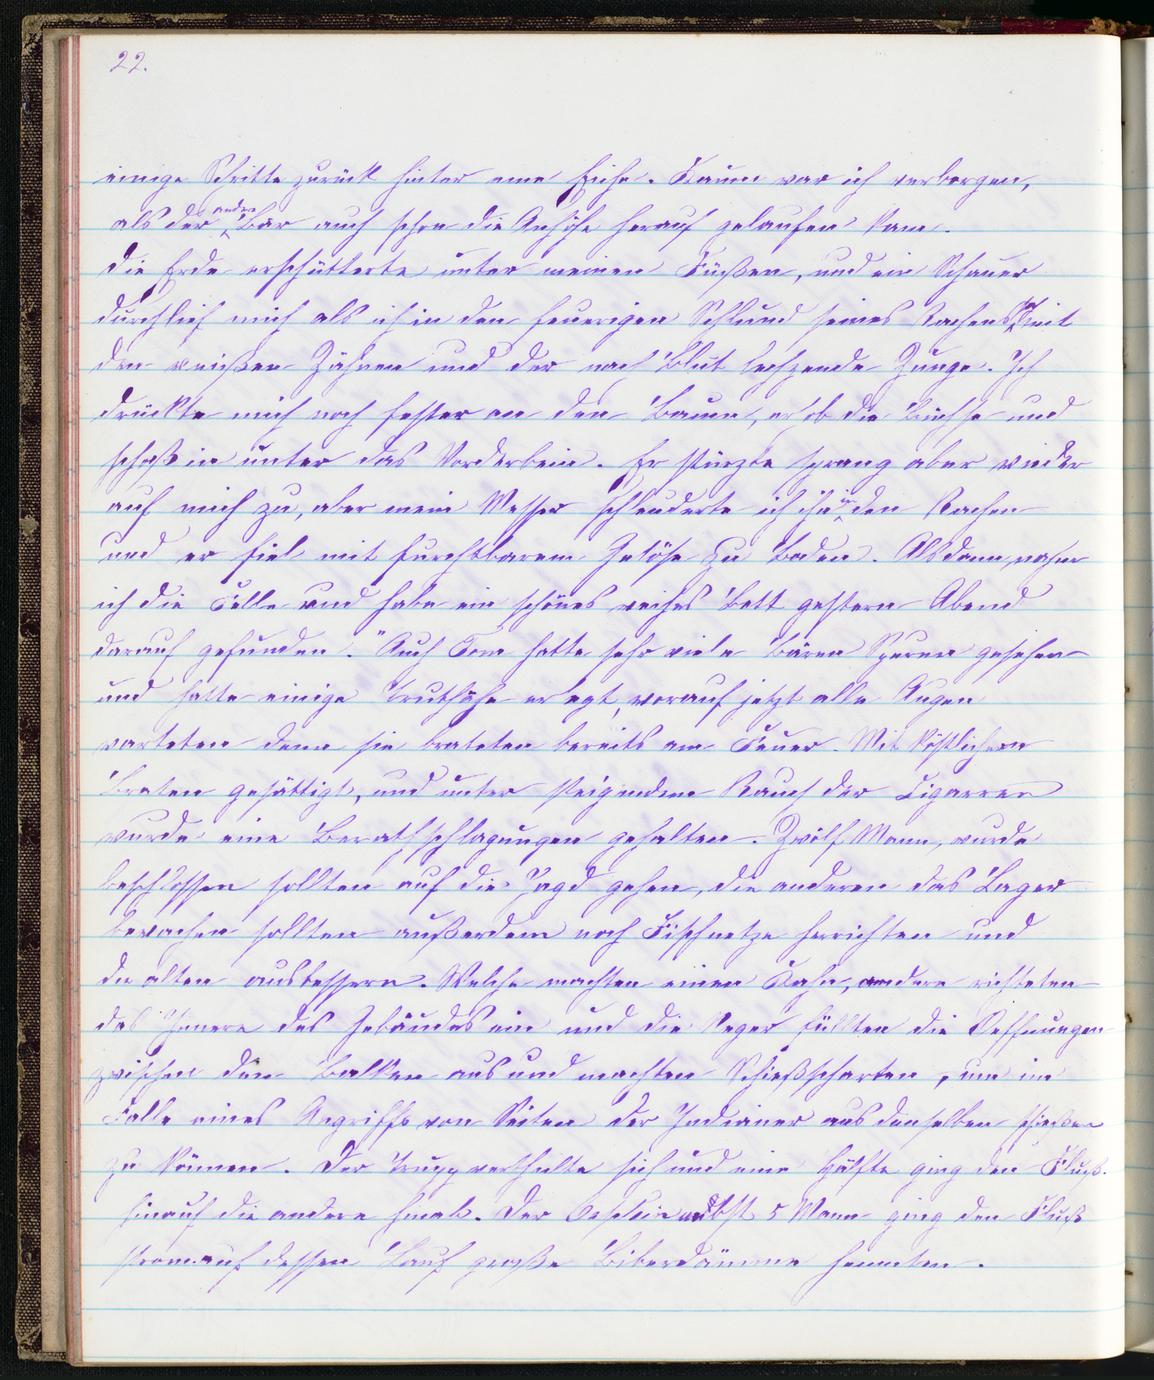 22.
einige Schritte zurück hinter eine Eiche. Kaum war ich verborgen,
als der andre Bär auch schon die Anhöhe herauf gelaufen kam.
die Erde erschütterte unter meinen Füßen, und ein Schauer
durchlief mich als ich in den feuerigen Schlund seines Rachens mit
den weißen Zähnen und der nach Blut lechzende Zunge. Ich
drückte mich noch fester an den Baum, erhob die Büchse und
schoß in unter das Vorderbein. Er stürzte sprang aber wieder
auf mich zu, aber mein Messer schleuderte ich ihn in den Rachen
und er fiel mit furchtbarem Getöse zu Boden. Alsdann, nahm
ich die Felle und habe ein schönes weiches Bett gestern Abend
darauf gefunden." Auch Tom hatte sehr viele Bären Spuren gesehen
und hatte einige Truthähne erlegt, worauf jetzt alle Augen
warteten denn sie brateten bereits am Feuer. Mit köstlichem
Braten gesättigt, und unter steigendem Rauch der Cigarren
wurde eine Berathschlagungen gehalten. Zwölf Mann, wurde
beschlossen sollten auf die Jagd gehen, die anderen das Lager
bewachen sollten außerdem noch Fischnetze herrichten und
die alten ausbessern. Welche machten einen Kahn, andere richteten
das Innere des Gebäudes ein und die Neger füllten die Oeffnungen
zwischen den Balken aus und machten Schießscharten, um im
Falle eines Angriffs von Seiten der Indianer aus denselben schießen
zu können. Der Trupp vertheilte sich und eine Hälfte ging den Fluß
hinauf die andere hinab. Der nebst 5 Mann ging den Fluß
stromauf dessen Lauf große Biberdämme hemmten.